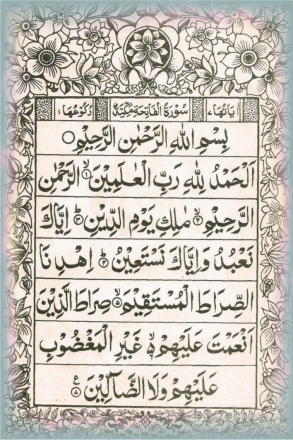 اٰيَاتُهَا ٧ سُوْرَةُ الْفَاتِحَةِ مَكِّيَّةٌ رُكُوْعُهَا ١
بِسْمِ اللهِ الرَّحْمٰنِ الرَّحِيْمِ
اَلْحَمْدُ لِلّٰهِ رَبِّ الْعٰلَمِيْنَ ۙ١ الرَّحْمٰنِ
الرَّحِيْمِ ۙ٢ مٰلِكِ يَوْمِ الدِّيْنِ ؕ٣ اِيَّاكَ
نَعْبُدُ وَاِيَّاكَ نَسْتَعِيْنُ ؕ٤ اِهْدِنَا
الصِّرَاطَ الْمُسْتَقِيْمَ ۙ٥ صِرَاطَ الَّذِيْنَ
اَنْعَمْتَ عَلَيْهِمْ ۙ٦ غَيْرِ الْمَغْضُوْبِ
عَلَيْهِمْ وَلَا الضَّآلِّيْنَ ٧ ع